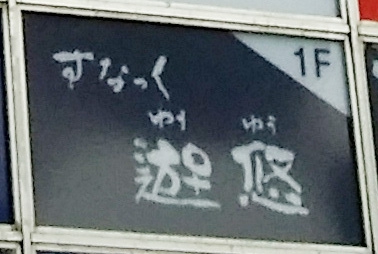 すなっく
1F
ゆう ゆう
遊 悠